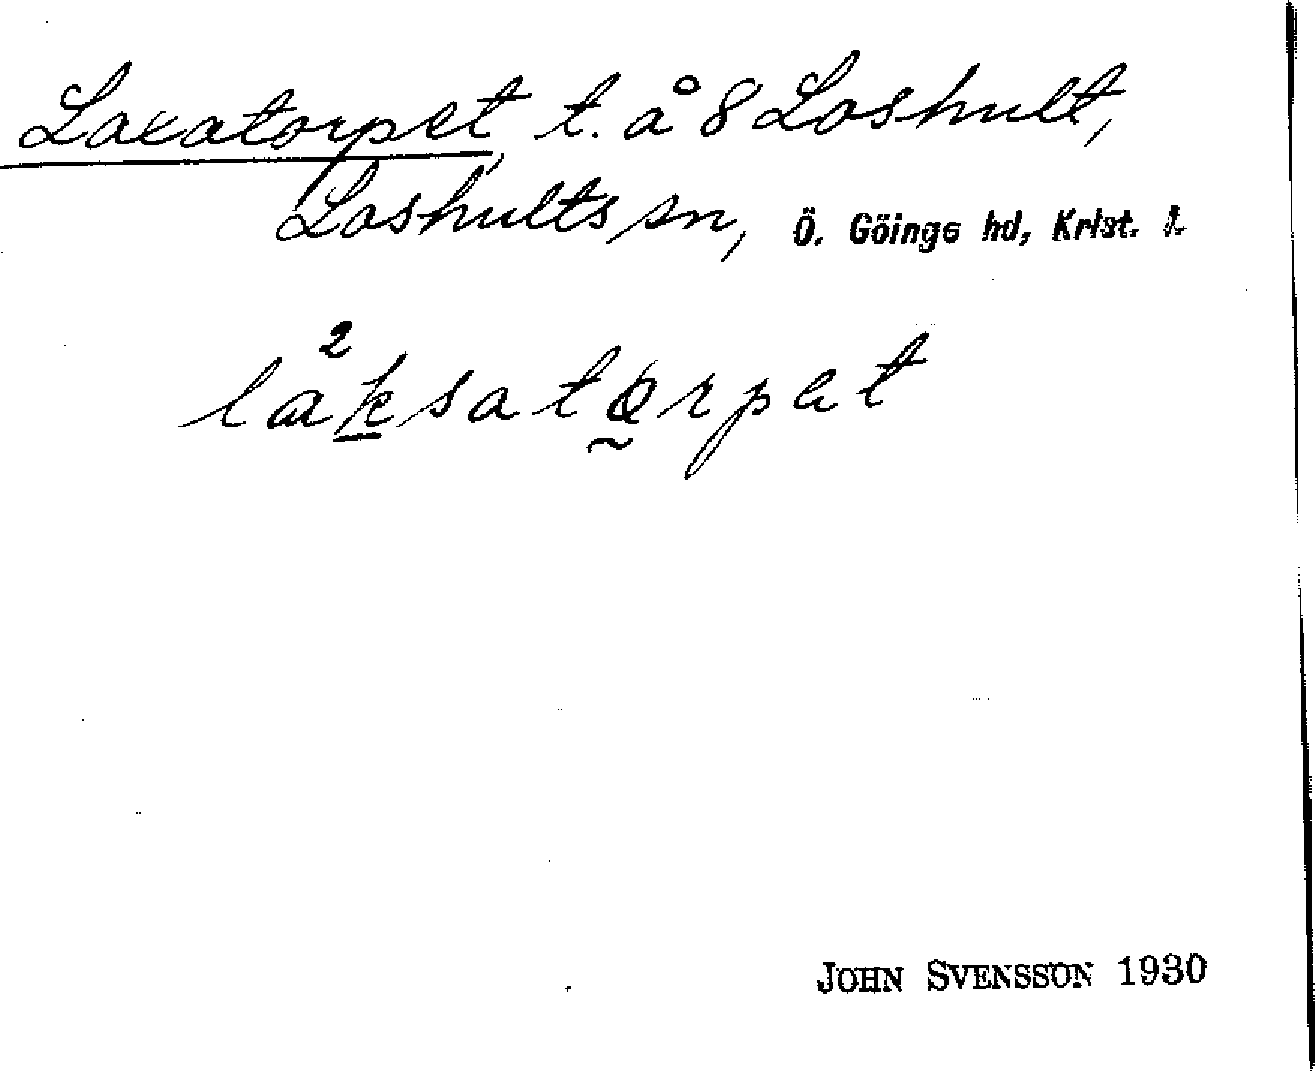 Laxatorpet, t. å 8 Loshult,
Loshults sn, Ö. Göinge hd, Krist. l.
la²ksatorpet
JOHN SVENSSON 1930